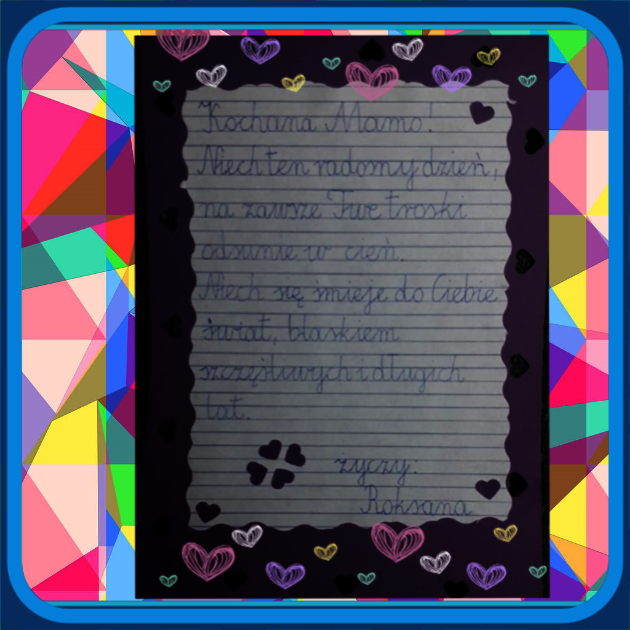 Kochana Mamo!
Niech ten radomy dzień,
na zawsze Twe troski
odsunie w cień.
Niech się śmieje do Ciebie
świat, blaskiem
szczęśliwych i długich
lat.
życzy:
Roksana